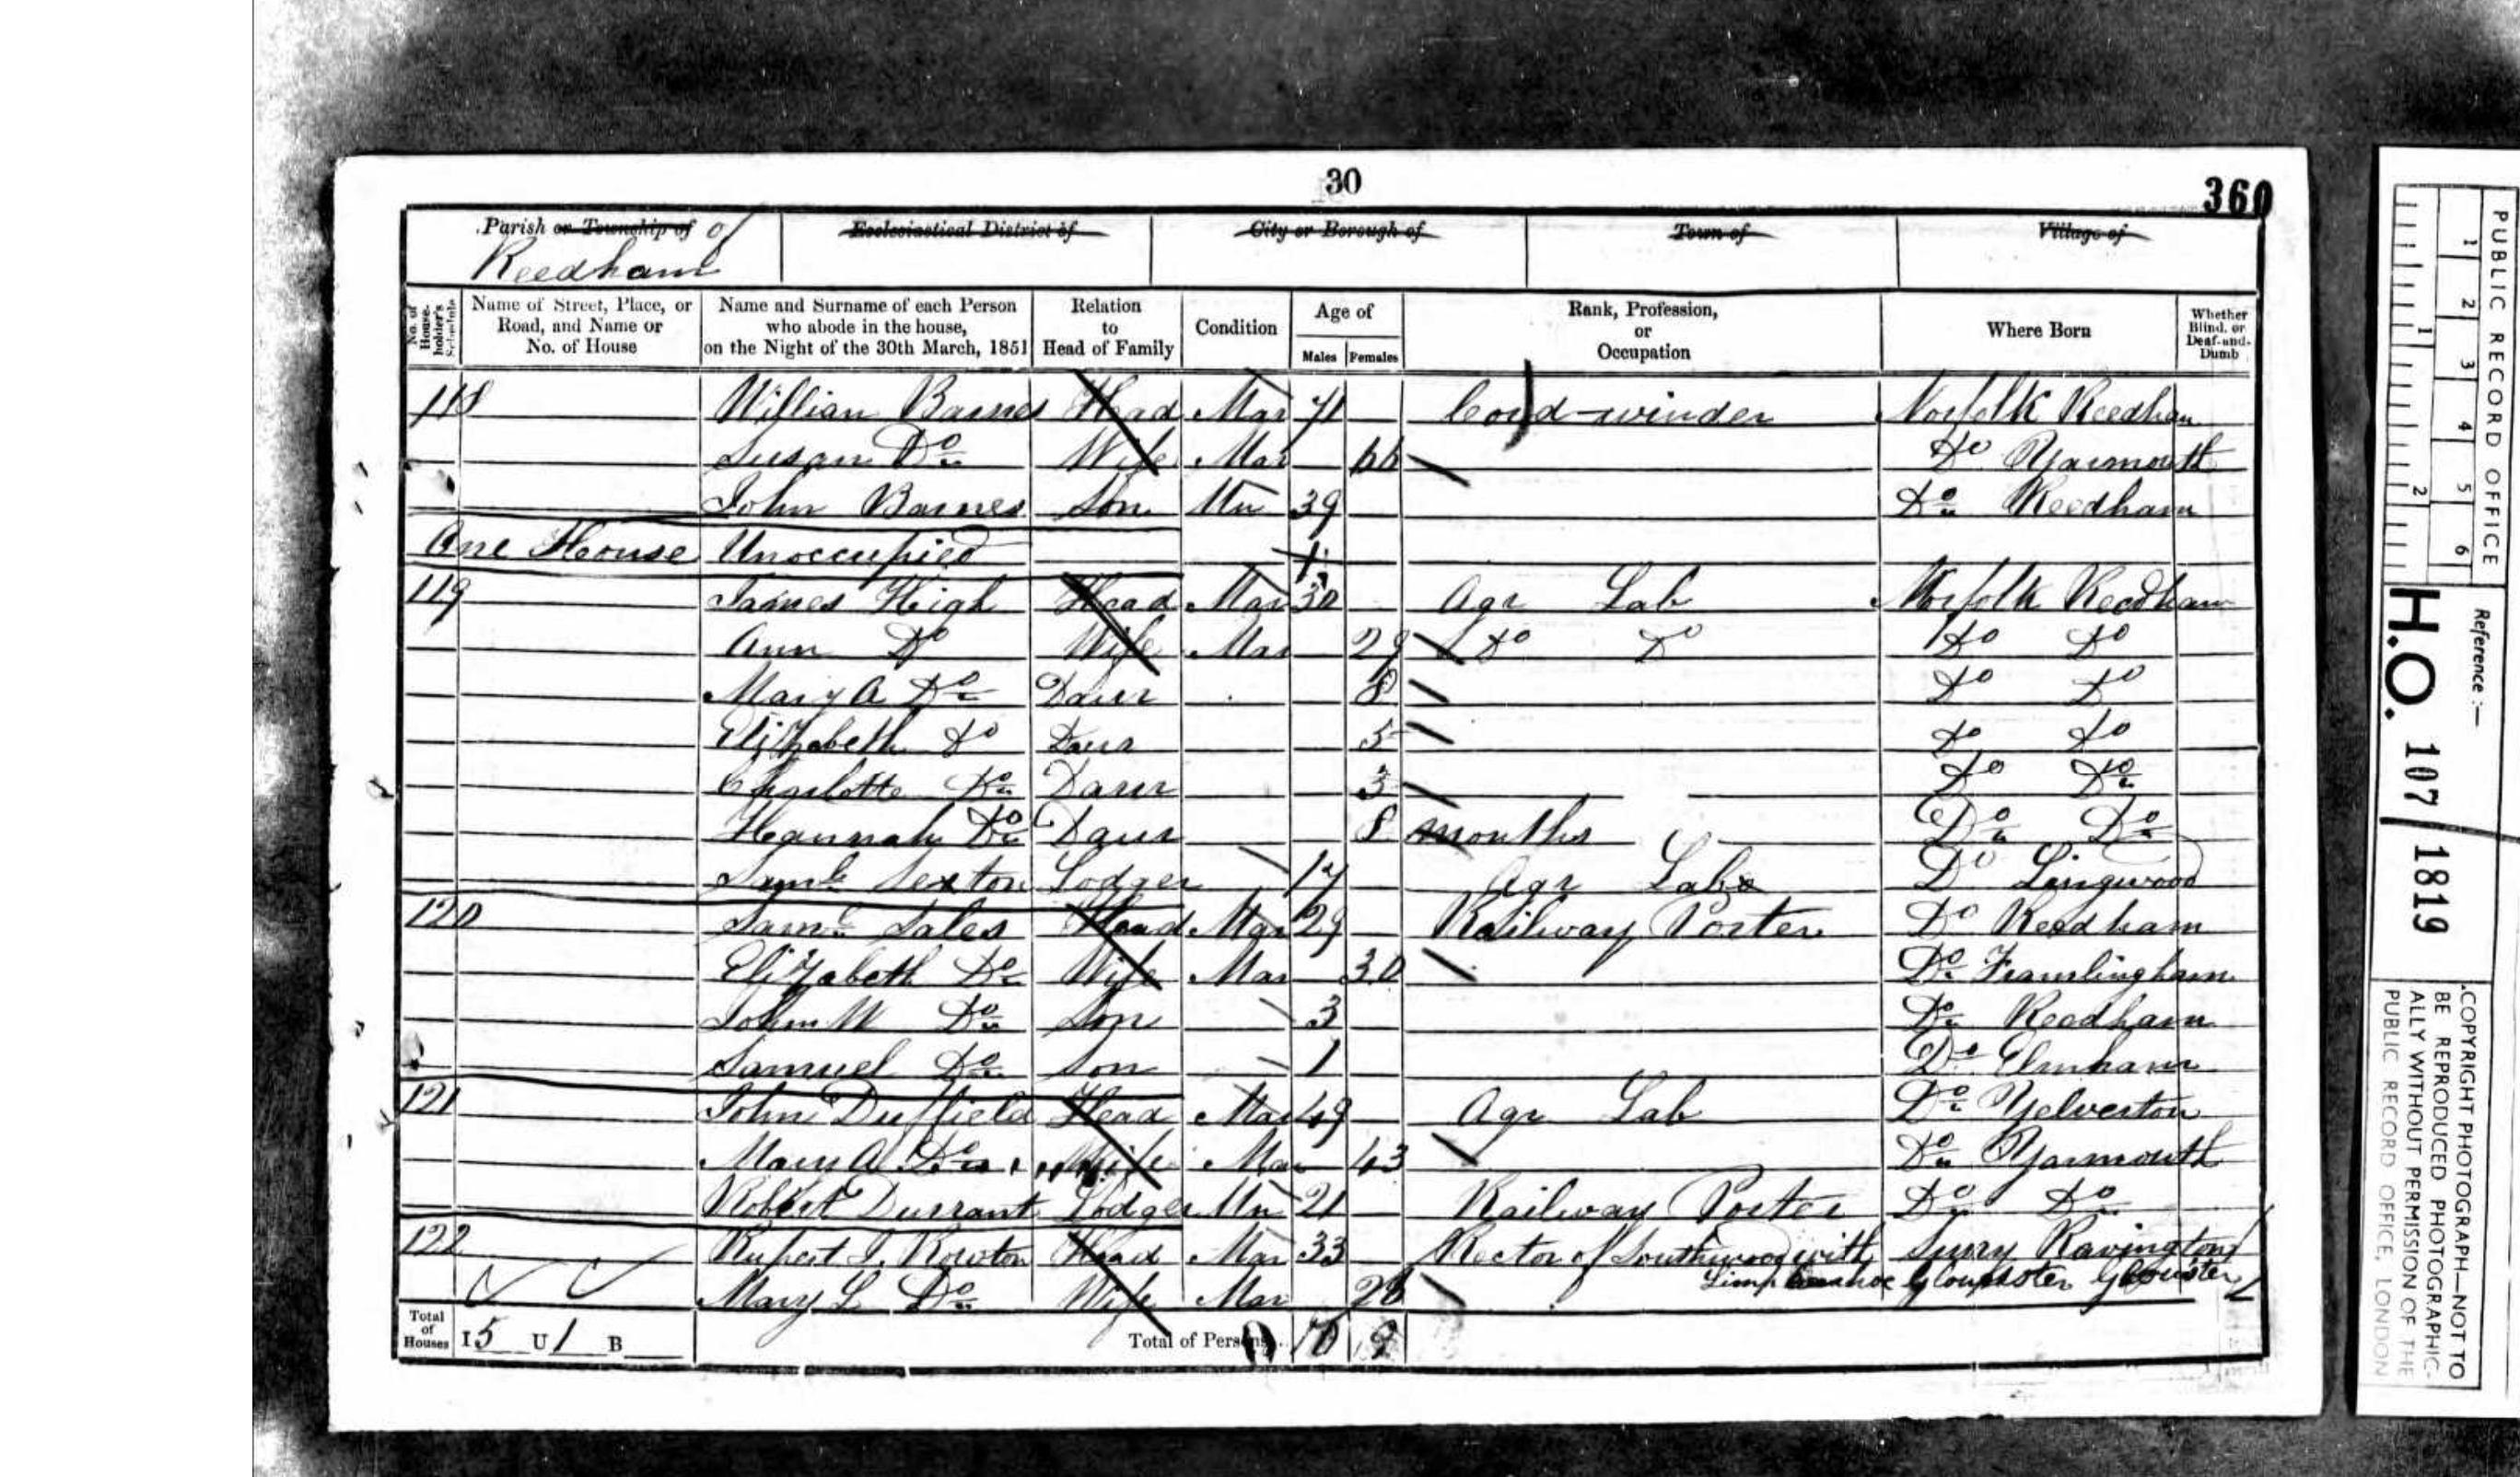 30
360
Parish or Township of of
Reedham
Ecclesiastical District of
City or Borough of
Town of
Village of
No. of House-holder's Schedule
Name of Street, Place, or Road, and Name or No. of House
Name and Surname of each Person who abode in the house, on the Night of the 30th March, 1851
Relation to Head of Family
Condition
Age of
Males Females
Rank, Profession, or Occupation
Where Born
Whether Blind, or Deaf-and-Dumb
118 William Barnes Head Mar 71 Cord-winder Norfolk Reedham
Susan Do Wife Mar 66 Do Yarmouth
John Barnes Son Un 39 Do Reedham
One House Unoccupied
119 James High Head Mar 30 Agr Lab Norfolk Reedham
Ann Do Wife Mar 29 Do Do Do Do
Mary A Do Daur 8 Do Do
Elizabeth Do Daur 5 Do Do
Charlotte Do Daur 3 Do Do
Hannah Do Daur 8 months Do Do
Saml Sexton Lodger 17 Agr Lab Do Lingwood
120 Saml Sales Head Mar 29 Railway Porter Do Reedham
Elizabeth Do Wife Mar 30 Do Framlingham
John W Do Son 3 Do Reedham
Samuel Do Son 1 Do Elmham
121 John Duffield Head Mar 49 Agr Lab Do Yelverton
Mary A Do Wife Mar 43 Do Yarmouth
Robert Durrant Lodger Un 21 Railway Porter Do Do
122 Rupert J. Rowton Head Mar 33 Rector of Southwood with Surry
Limpenhoe
Mary L Do Wife Mar 28 Gloucester Gloucester
Total of Houses I 5 U 1 B
Total of Persons 10 9
PUBLIC RECORD OFFICE
1 2 3 4 5 6
1 2
Reference :—
H.O. 107/1819
COPYRIGHT PHOTOGRAPH—NOT TO BE REPRODUCED PHOTOGRAPHIC-ALLY WITHOUT PERMISSION OF THE PUBLIC RECORD OFFICE, LONDON